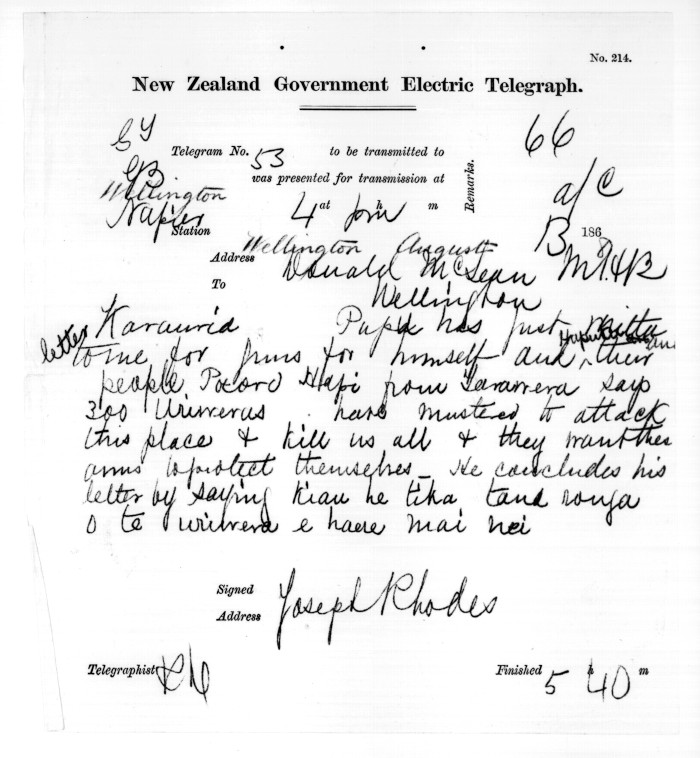 No. 214.
New Zealand Government Electric Telegraph.
Telegram No. 53 to be transmitted to
66
Wellington was presented for transmission at
Remarks.
a/c
Napier Station 4 at h m
13 186
Address Wellington August
To Donald McLean M.H.R
Wellington
Papa has just
letter to me for guns for himself and their
people from Tarawera say
300 Uriweras have mustered to attack
this place & kill us all & they want the
arms to protect themselves_ He concludes his
letter by saying kiau he tika
o te uriwera e haere mai nei
Signed Joseph Rhodes
Address
Telegraphist
Finished 5 h 40 m